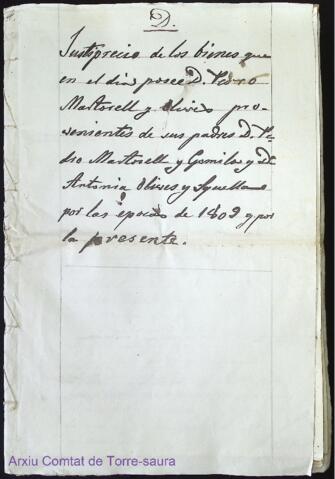 D.
Justiprecio de los bienes que
en el dia posee D. Pedro
Martorell y Olives pro-
venientes de sus padres D. Pe-
dro Martorell y Gomila y Dª
Antonia Olives y Squella
por las épocas de 1809 y por
la presente.
Arxiu Comtat de Torre-saura